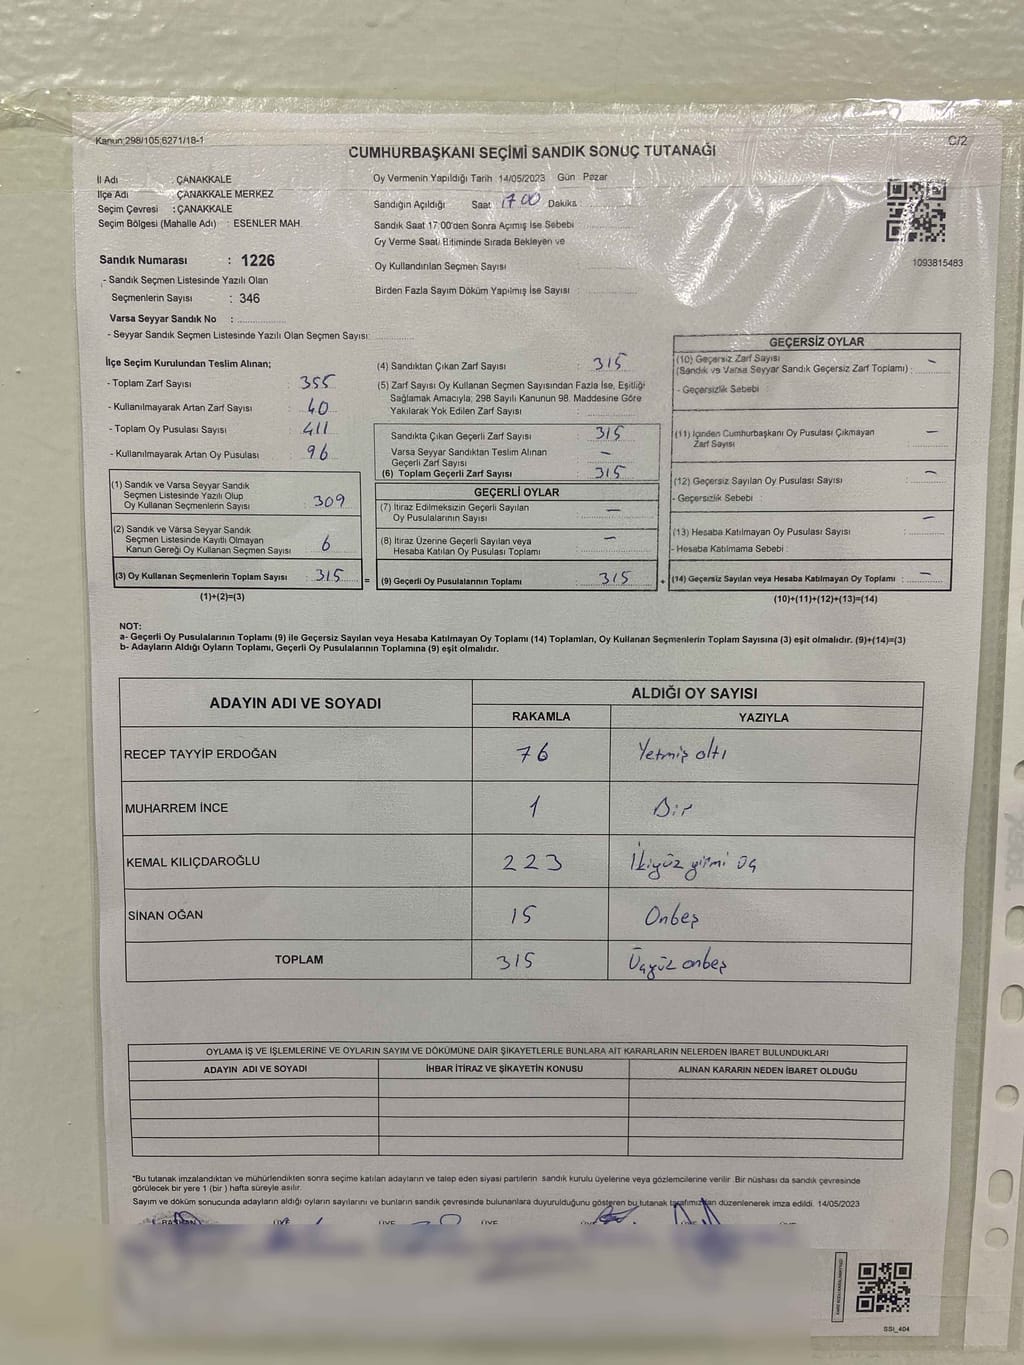 Kanun:298/105,6271/18-1
C/2
CUMHURBAŞKANI SEÇİMİ SANDIK SONUÇ TUTANAĞI
İl Adı : ÇANAKKALE
İlçe Adı : ÇANAKKALE MERKEZ
Seçim Çevresi : ÇANAKKALE
Seçim Bölgesi (Mahalle Adı) : ESENLER MAH.
Sandık Numarası : 1226
- Sandık Seçmen Listesinde Yazılı Olan
Seçmenlerin Sayısı : 346
Varsa Seyyar Sandık No :
- Seyyar Sandık Seçmen Listesinde Yazılı Olan Seçmen Sayısı:
Oy Vermenin Yapıldığı Tarih 14/05/2023 Gün Pazar
Sandığın Açıldığı Saat 17 00 Dakika :
Sandık Saat 17:00'den Sonra Açımış İse Sebebi
Oy Verme Saati Bitiminde Sırada Bekleyen ve
Oy Kullandırılan Seçmen Sayısı
Birden Fazla Sayım Döküm Yapılmış İse Sayısı :
1093815483
İlçe Seçim Kurulundan Teslim Alınan;
- Toplam Zarf Sayısı : 355
- Kullanılmayarak Artan Zarf Sayısı : 40
- Toplam Oy Pusulası Sayısı : 411
- Kullanılmayarak Artan Oy Pusulası : 96
(1) Sandık ve Varsa Seyyar Sandık
Seçmen Listesinde Yazılı Olup
Oy Kullanan Seçmenlerin Sayısı : 309
(2) Sandık ve Varsa Seyyar Sandık
Seçmen Listesinde Kayıtlı Olmayan
Kanun Gereği Oy Kullanan Seçmen Sayısı : 6
(3) Oy Kullanan Seçmenlerin Toplam Sayısı : 315 =
(1)+(2)=(3)
(4) Sandıktan Çıkan Zarf Sayısı : 315
(5) Zarf Sayısı Oy Kullanan Seçmen Sayısından Fazla İse, Eşitliği
Sağlamak Amacıyla; 298 Sayılı Kanunun 98. Maddesine Göre
Yakılarak Yok Edilen Zarf Sayısı :
Sandıkta Çıkan Geçerli Zarf Sayısı : 315
Varsa Seyyar Sandıktan Teslim Alınan
Geçerli Zarf Sayısı : —
(6) Toplam Geçerli Zarf Sayısı : 315
GEÇERLİ OYLAR
(7) İtiraz Edilmeksizin Geçerli Sayılan
Oy Pusulalarının Sayısı : —
(8) İtiraz Üzerine Geçerli Sayılan veya
Hesaba Katılan Oy Pusulası Toplamı : —
(9) Geçerli Oy Pusulalarının Toplamı : 315 +
GEÇERSİZ OYLAR
(10) Geçersiz Zarf Sayısı
(Sandık ve Varsa Seyyar Sandık Geçersiz Zarf Toplamı) : —
- Geçersizlik Sebebi :
(11) İçinden Cumhurbaşkanı Oy Pusulası Çıkmayan
Zarf Sayısı : —
(12) Geçersiz Sayılan Oy Pusulası Sayısı : —
- Geçersizlik Sebebi :
(13) Hesaba Katılmayan Oy Pusulası Sayısı : —
- Hesaba Katılmama Sebebi :
(14) Geçersiz Sayılan veya Hesaba Katılmayan Oy Toplamı : —
(10)+(11)+(12)+(13)=(14)
NOT:
a- Geçerli Oy Pusulalarının Toplamı (9) ile Geçersiz Sayılan veya Hesaba Katılmayan Oy Toplamı (14) Toplamları, Oy Kullanan Seçmenlerin Toplam Sayısına (3) eşit olmalıdır. (9)+(14)=(3)
b- Adayların Aldığı Oyların Toplamı, Geçerli Oy Pusulalarının Toplamına (9) eşit olmalıdır.
ADAYIN ADI VE SOYADI
ALDIĞI OY SAYISI
RAKAMLA YAZIYLA
RECEP TAYYİP ERDOĞAN 76 Yetmiş altı
MUHARREM İNCE 1 Bir
KEMAL KILIÇDAROĞLU 223 İkiyüz yirmi üç
SİNAN OĞAN 15 Onbeş
TOPLAM 315 Üçyüz onbeş
OYLAMA İŞ VE İŞLEMLERİNE VE OYLARIN SAYIM VE DÖKÜMÜNE DAİR ŞİKAYETLERLE BUNLARA AİT KARARLARIN NELERDEN İBARET BULUNDUKLARI
ADAYIN ADI VE SOYADI İHBAR İTİRAZ VE ŞİKAYETİN KONUSU ALINAN KARARIN NEDEN İBARET OLDUĞU
*Bu tutanak imzalandıktan ve mühürlendikten sonra seçime katılan adayların ve talep eden siyasi partilerin sandık kurulu üyelerine veya gözlemcilerine verilir .Bir nüshası da sandık çevresinde
görülecek bir yere 1 (bir ) hafta süreyle asılır.
Sayım ve döküm sonucunda adayların aldığı oyların sayılarını ve bunların sandık çevresinde bulunanlara duyurulduğunu gösteren bu tutanak tarafımızdan düzenlenerek imza edildi. 14/05/2023
BAŞKAN ÜYE ÜYE ÜYE ÜYE ÜYE ÜYE
SSI_404